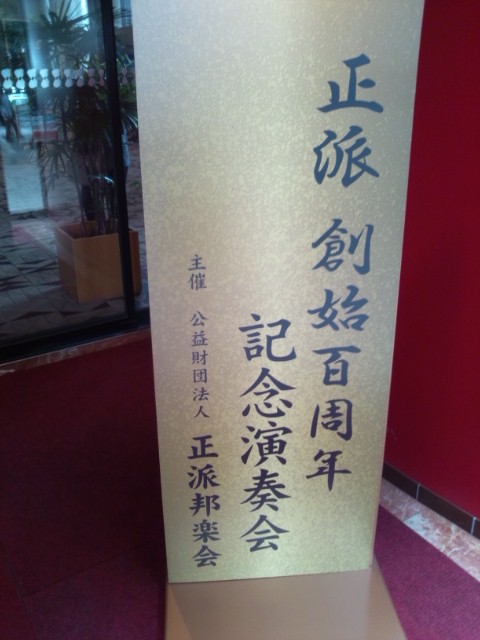 正派 創始百周年
記念演奏会
主催 公益財団法人 正派邦楽会